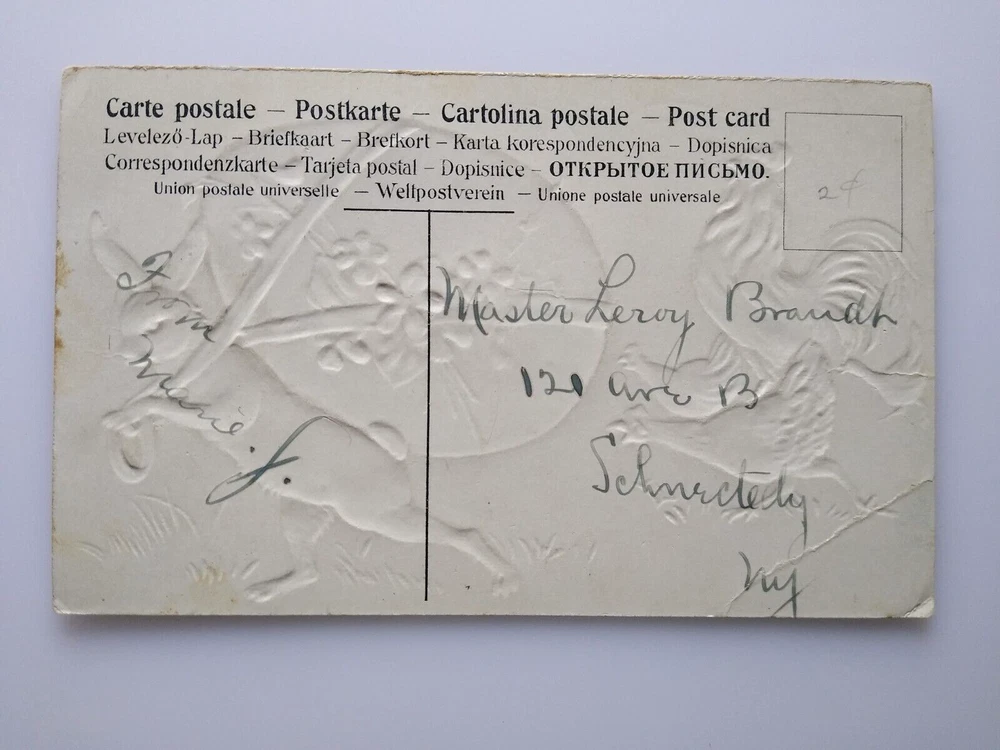 Carte postale — Postkarte — Cartolina postale — Post card
Levelező-Lap – Briefkaart – Brefkort – Karta korespondencyjna – Dopisnica
Correspondenzkarte – Tarjeta postal – Dopisnice – ОТКРЫТОЕ ПИСЬМО.
Union postale universelle — Weltpostverein — Unione postale universale
2¢
From
Marie. J.
Master Leroy Brandt
121 Ave B
Schnectedy
NY